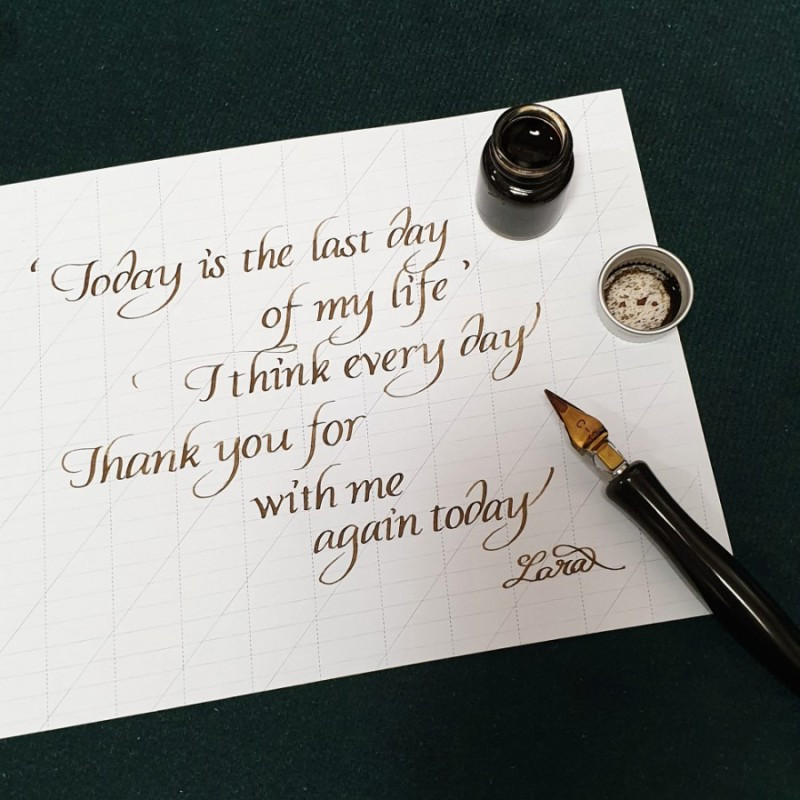 ‘Today is the last day
of my life’
I think every day
Thank you for
with me
again today
Lara